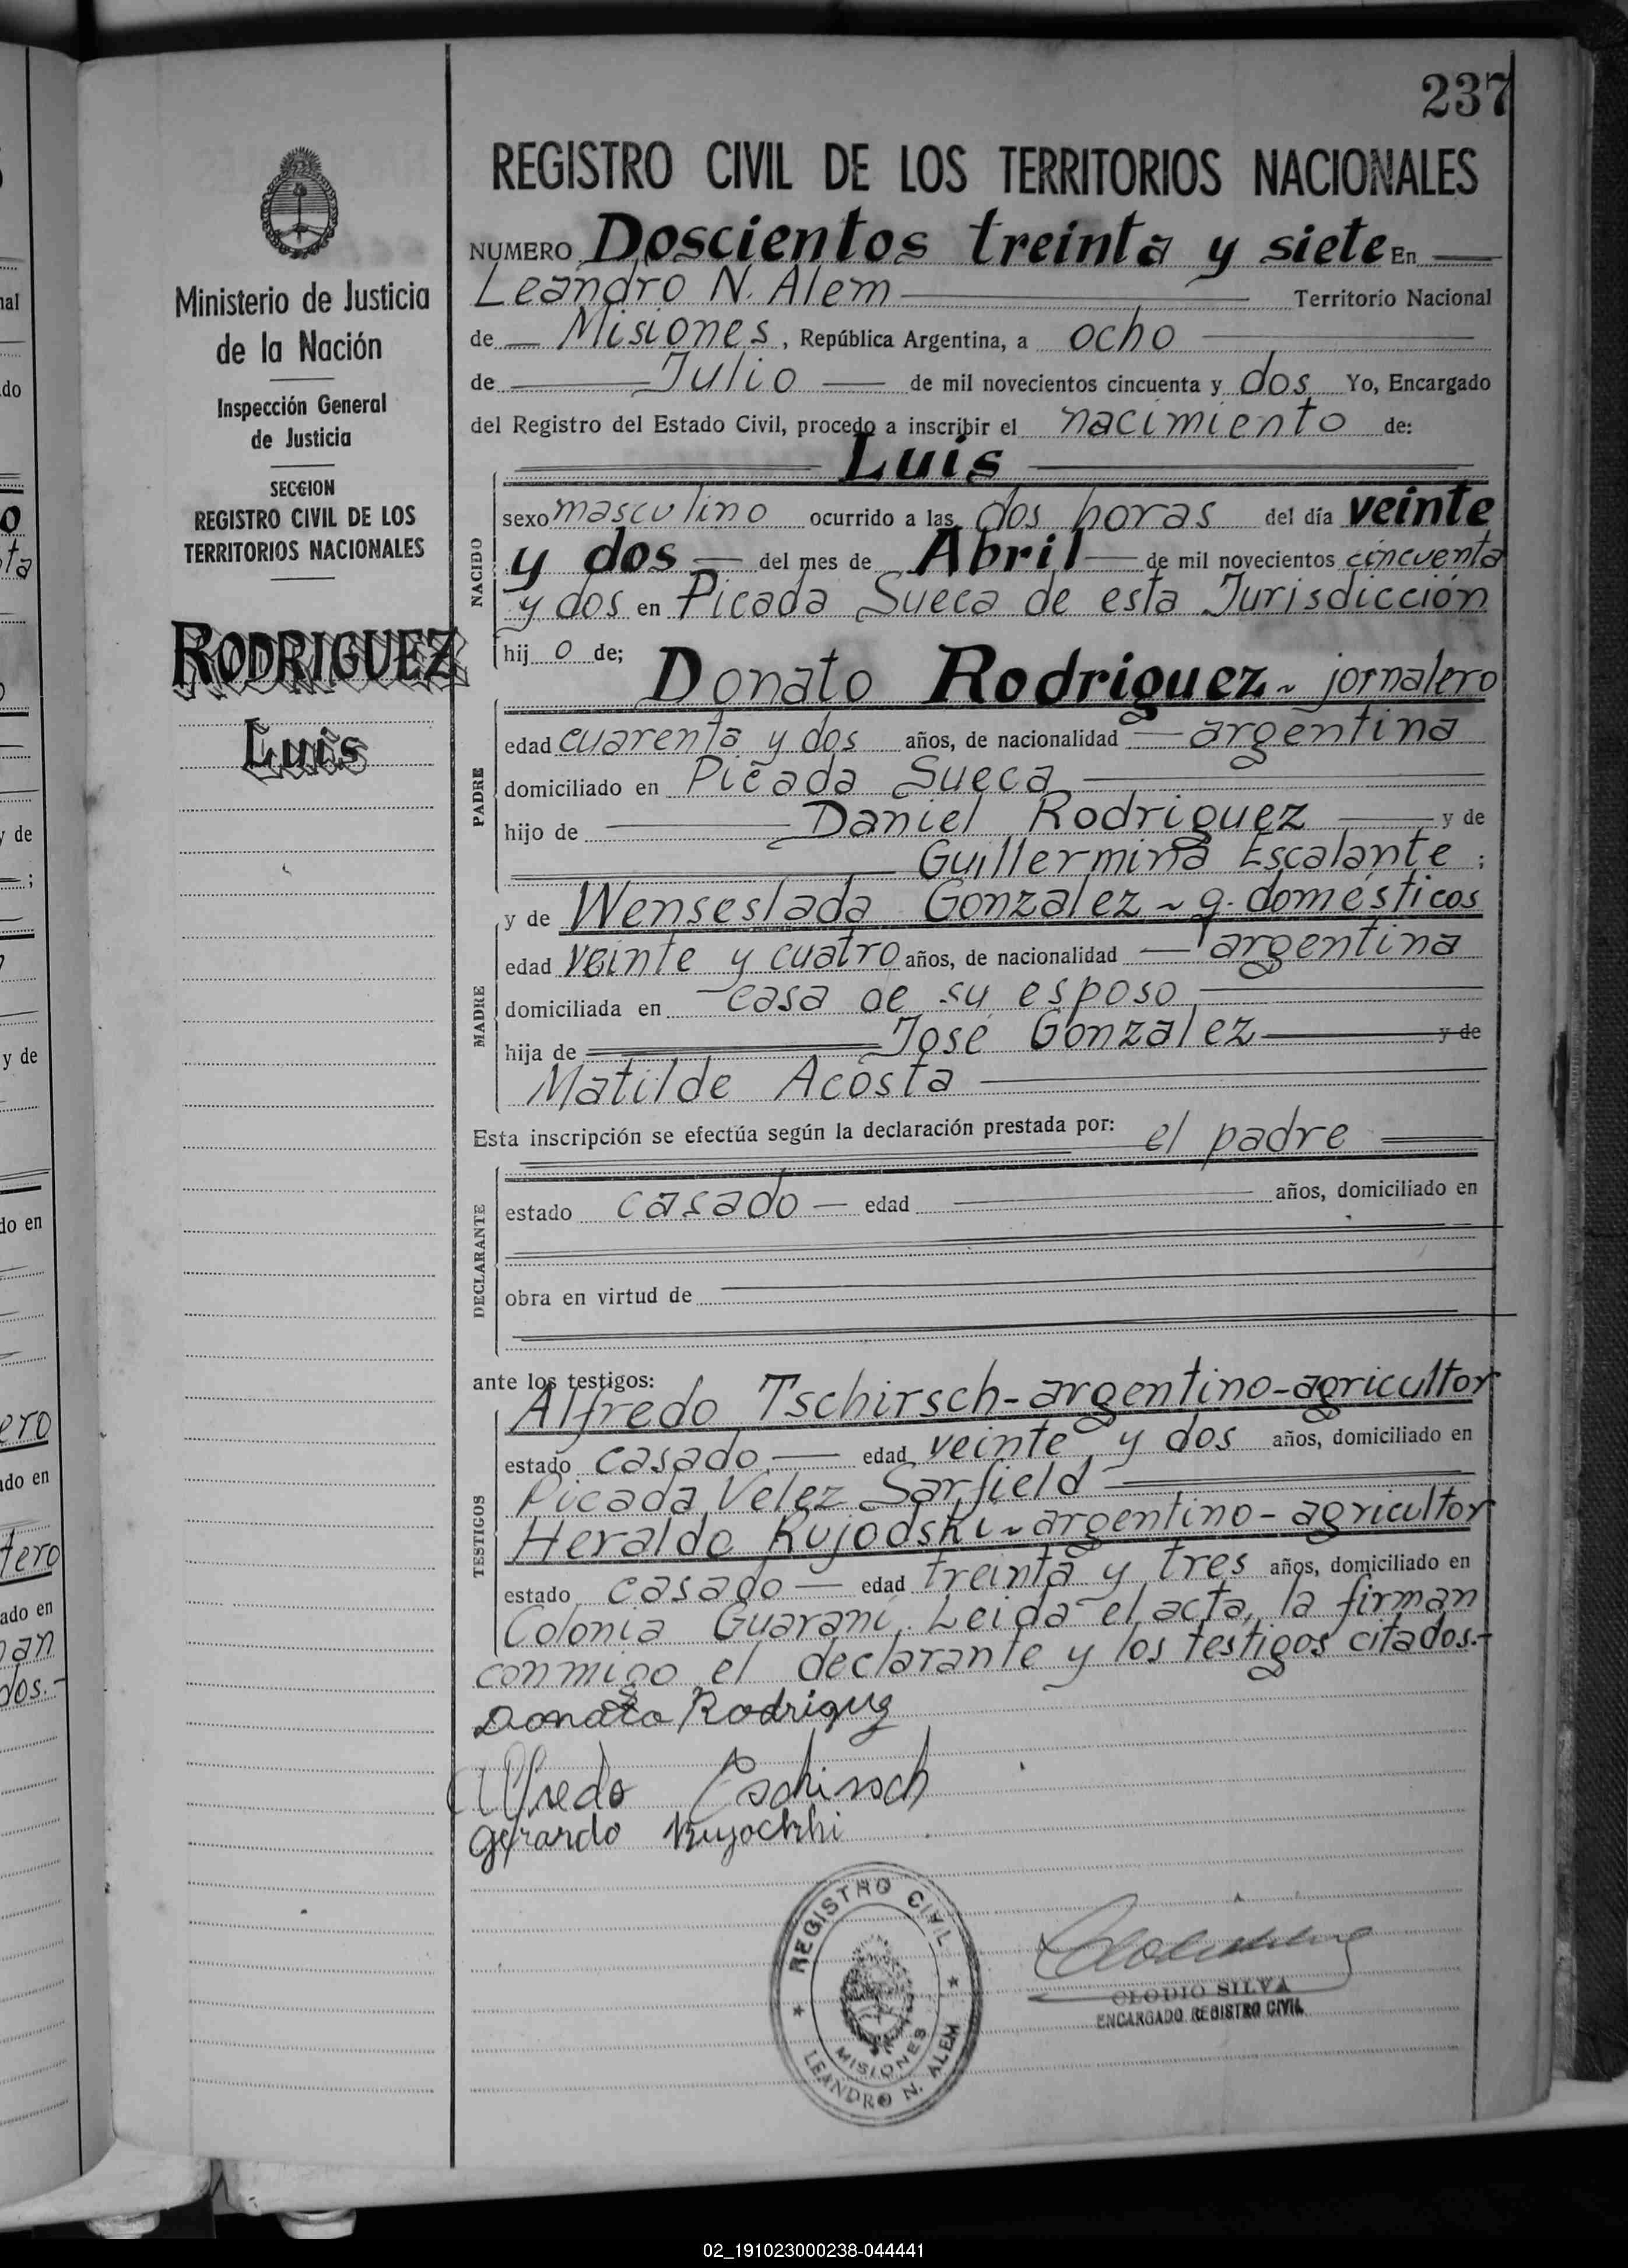 237
REGISTRO CIVIL DE LOS TERRITORIOS NACIONALES
Ministerio de Justicia
de la Nación
Inspección General
de Justicia
SECCION
REGISTRO CIVIL DE LOS
TERRITORIOS NACIONALES
RODRIGUEZ
Luis
NUMERO Doscientos treinta y siete En
Leandro N. Alem Territorio Nacional
de Misiones, República Argentina, a ocho
de Julio de mil novecientos cincuenta y dos Yo, Encargado
del Registro del Estado Civil, procedo a inscribir el nacimiento de:
Luis
NACIDO
sexo masculino ocurrido a las dos horas del día veinte
y dos del mes de Abril de mil novecientos cincuenta
y dos en Picada Sueca de esta Jurisdicción
hij o de;
Donato Rodriguez ~ jornalero
PADRE
edad cuarenta y dos años, de nacionalidad argentina
domiciliado en Picada Sueca
hijo de Daniel Rodriguez y de
Guillermina Escalante ;
y de Wenseslada Gonzalez ~ q. domésticos
MADRE
edad veinte y cuatro años, de nacionalidad argentina
domiciliada en casa de su esposo
hija de José Gonzalez y de
Matilde Acosta
Esta inscripción se efectúa según la declaración prestada por: el padre
DECLARANTE
estado casado edad años, domiciliado en
obra en virtud de
ante los testigos:
TESTIGOS
Alfredo Tschirsch-argentino-agricultor
estado casado edad veinte y dos años, domiciliado en
Picada Velez Sarfield
Heraldo Kujodski ~ argentino - agricultor
estado casado edad treinta y tres años, domiciliado en
Colonia Guaraní. Leida el acta, la firman
conmigo el declarante y los testigos citados.-
Donato Rodriguz
Alfredo Tschirsch
Gerardo
REGISTRO CIVIL
MISIONES
LEANDRO N. ALEM
CLODIO SILVA
ENCARGADO REGISTRO CIVIL
02_191023000238-044441